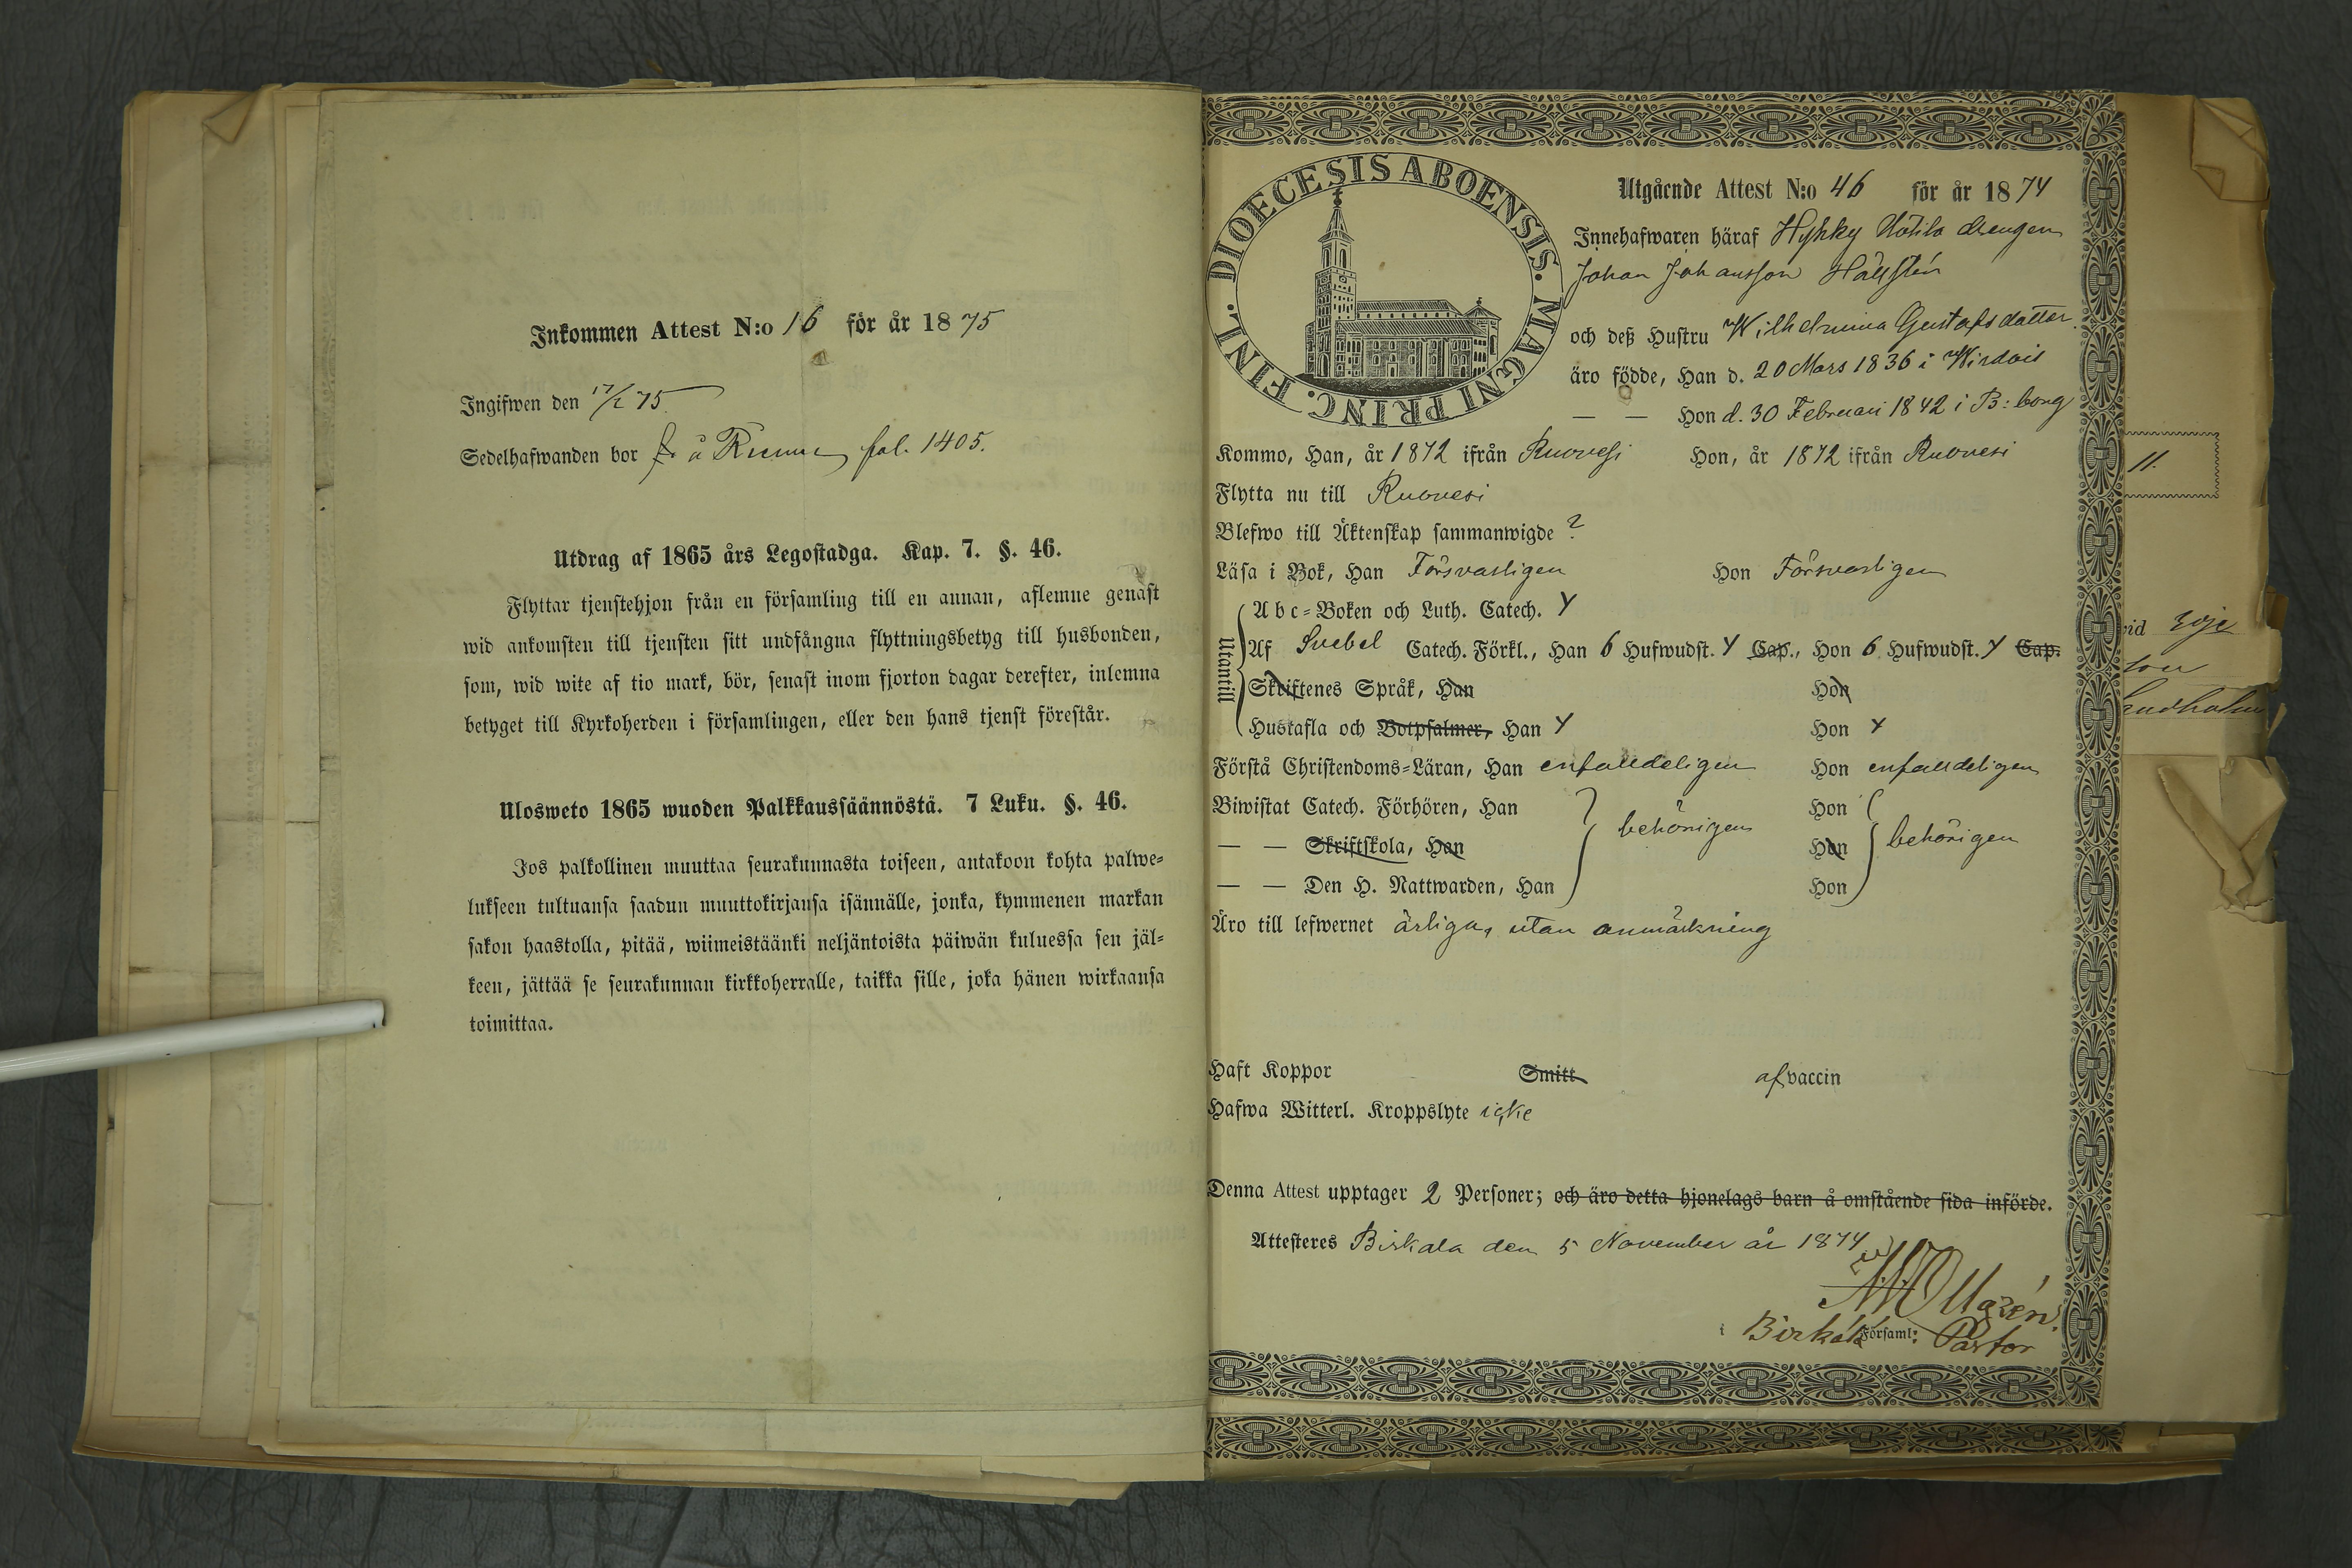 Inkommen Attest N:o 16 för år 1875
Ingifwen den 17/2 75.
Sedelhafwanden bor fol. 1405.
Utdrag af 1865 års Legostadga. Kap. 7. §. 46.
Flyttar tjenstehjon från en församling till en annan, aflemne genast
wid ankomsten till tjensten sitt undfångna flyttningsbetyg till husbonden,
som, wid wite af tio mark, bör, senast inom fjorton dagar derefter, inlemna
betyget till Kyrkoherden i församlingen, eller den hans tjenst förestår.
Ulosweto 1865 wuoden Palkkaussäännöstä. 7 Luku. §. 46.
Jos palkollinen muuttaa seurakunnasta toiseen, antakoon kohta palwe-
lukseen tultuansa saadun muuttokirjansa isännälle, jonka, kymmenen markan
sakon haastolla, pitää, wiimeistäänki neljäntoista päiwän kuluessa sen jäl-
keen, jättää se seurakunnan kirkkoherralle, taikka sille, joka hänen wirkaansa
toimittaa.
DIOECESIS ABOENSIS. MAGNI PRINC. FINL.
Utgående Attest N:o 46 för år 1874
Innehafwaren häraf Hyhky drengen
Johan Johansson Hällstén
och deß Hustru Wilhelmina Gustafsdotter
äro födde, Han d. 20 Mars 1836 i Wirdois
— — Hon d. 30 Februari 1842 i B:borg
Kommo, Han, år 1872 ifrån Ruovesi Hon, år 1872 ifrån Ruovesi
Flytta nu till Ruovesi
Blefwo till Äktenskap sammanwigde ?
Läsa i Bok, Han Försvarligen Hon Försvarligen
Utantill
Abc-Boken och Luth. Catech. Y
Af Svebel Catech. Förkl., Han 6 Hufwudst. Y Cap., Hon 6 Hufwudst. Y Cap.
Skriftenes Språk, Han Hon
Hustafla och Botpsalmer, Han Y Hon Y
Förstå Christendoms-Läran, Han enfalldeligen Hon enfalldeligen
Biwistat Catech. Förhören, Han Hon
behörigen behörigen
— — Skriftskola, Han Hon
— — Den H. Nattwarden, Han Hon
Äro till lefwernet ärliga, utan anmärkning
Haft Koppor Smitt af vaccin
Hafwa Witterl. Kroppslyte icke
Denna Attest upptager 2 Personer; och äro detta hjonelags barn å omstående sida införde.
Attesteres Birkala den 5 November år 1874
i Birkala Församl: Pastor
11.